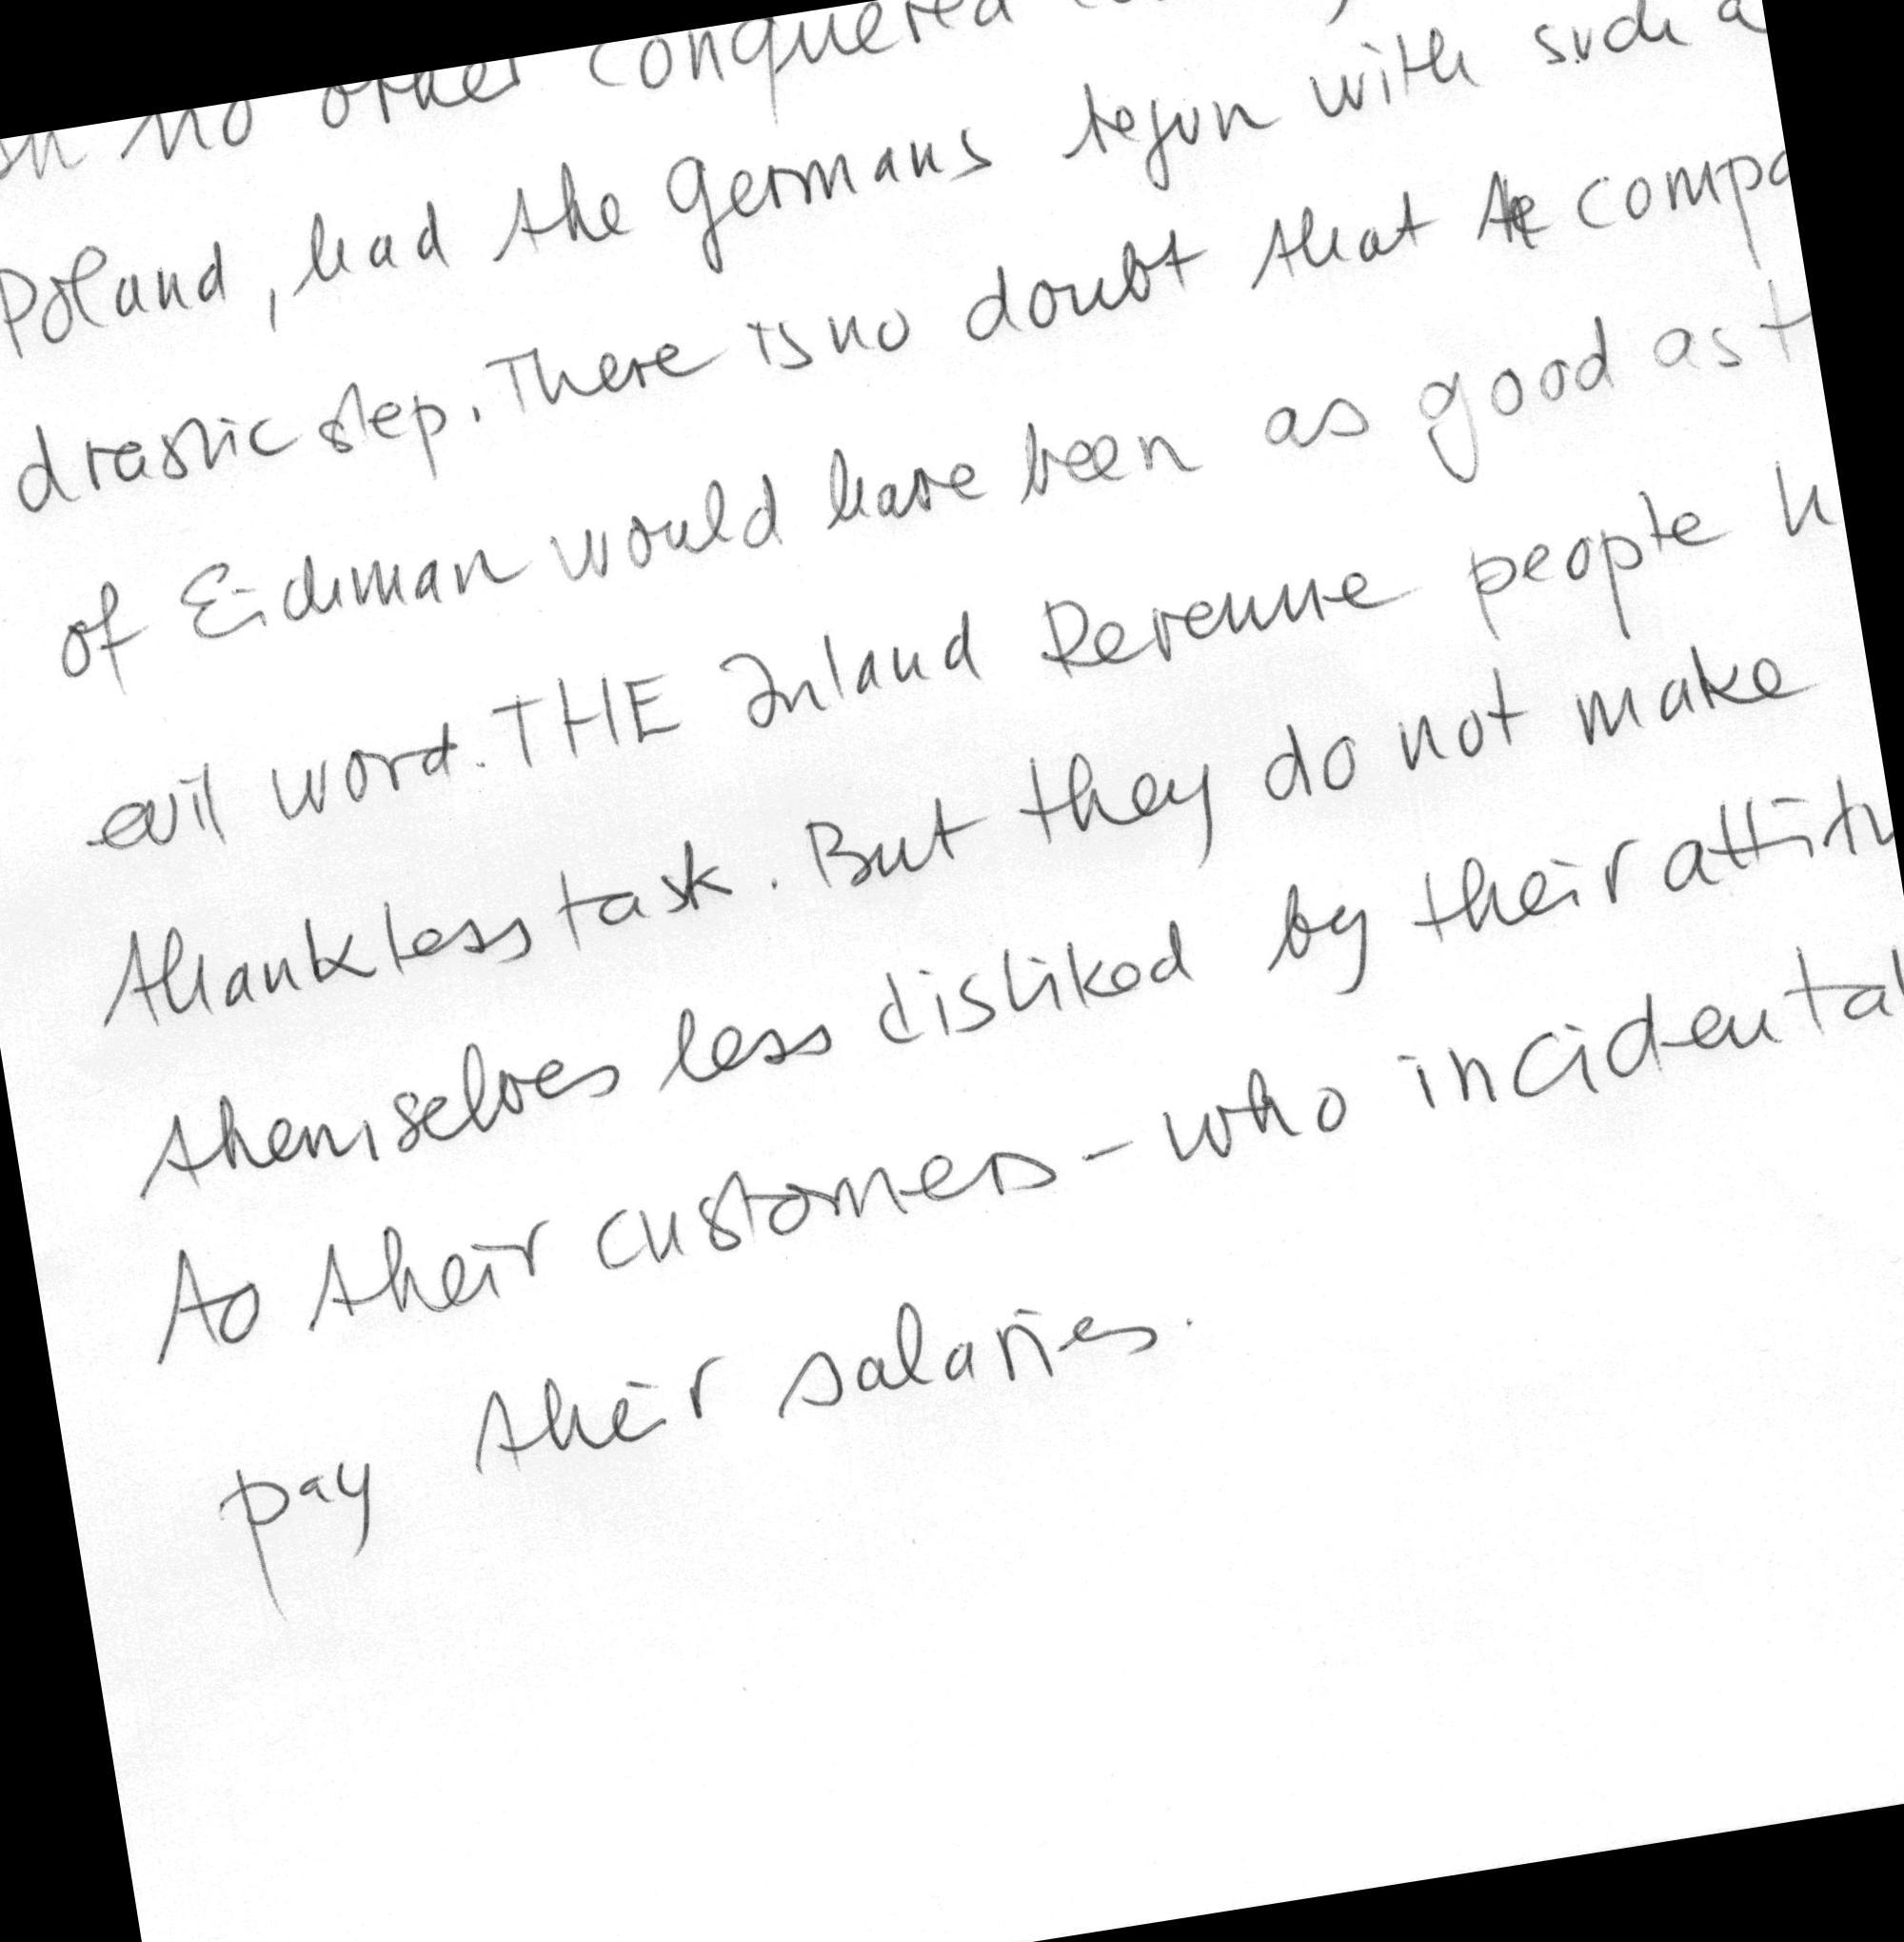 in no other conquered
Poland, had the Germans begun with such a
drastic step. There is no doubt that the compa
of Eichman would have been as good as t
evil word. THE Inland Revenue people h
thankless task. But they do not make
themselves less disliked by their attitu
to their customers - who incidental
pay their salaries.